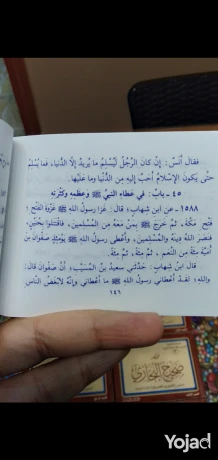 فَقَالَ أَنَسٌ: إِنْ كَانَ الرَّجُلُ لَيُسْلِمُ مَا يُرِيدُ إِلَّا الدُّنْيَا، فَمَا يُسْلِمُ
حَتَّى يَكُونَ الْإِسْلَامُ أَحَبَّ إِلَيْهِ مِنَ الدُّنْيَا وَمَا عَلَيْهَا.
٤٥ - باب: في عطاء النبي ﷺ وعظمه وكثرته
١٥٨٨ - عن ابن شهاب؛ قال: غزا رسول الله ﷺ غزوة الفتح؛
فتح مكة، ثم خرج ﷺ بمن معه من المسلمين، فاقتتلوا بحنين،
فنصر الله دينه والمسلمين، وأعطى رسول الله ﷺ يومئذٍ صفوان بن
أمية مئة من النعم، ثم مئة، ثم مئة.
قال ابن شهاب: حدثني سعيد بن المسيب؛ أن صفوان قال:
والله؛ لقد أعطاني رسول الله ﷺ ما أعطاني وإنه لأبغض الناس
٦٤٦
صحيح البخاري
Yojad